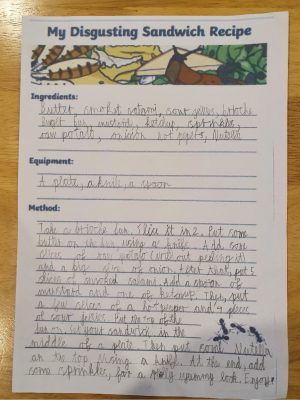 My Disgusting Sandwich Recipe
Ingredients:
Butter smoked salami, sour jellies, brioche
burger bun, mustard, ketchup, sprinkles,
raw potato, onion hot pepper, Nutella
Equipment:
A plate, a knife, a spoon
Method:
Take a brioche bun. Slice it in 2. Put some
butter on the bun using a knife. Add some
slices of raw potato (without peeling it)
and a big slice of onion. After that, put 5
slices of smoked salami. Add a spoon of
mustard and one of ketchup. Then, put
a few slices of a hot pepper and 4 pieces
of sour jellies. Put the top of the
bun on. Set your sandwich in the
middle of a plate. Then put some Nutella
on the top using a knife. At the end, add
some sprinkles, for a yummy look. Enjoy!